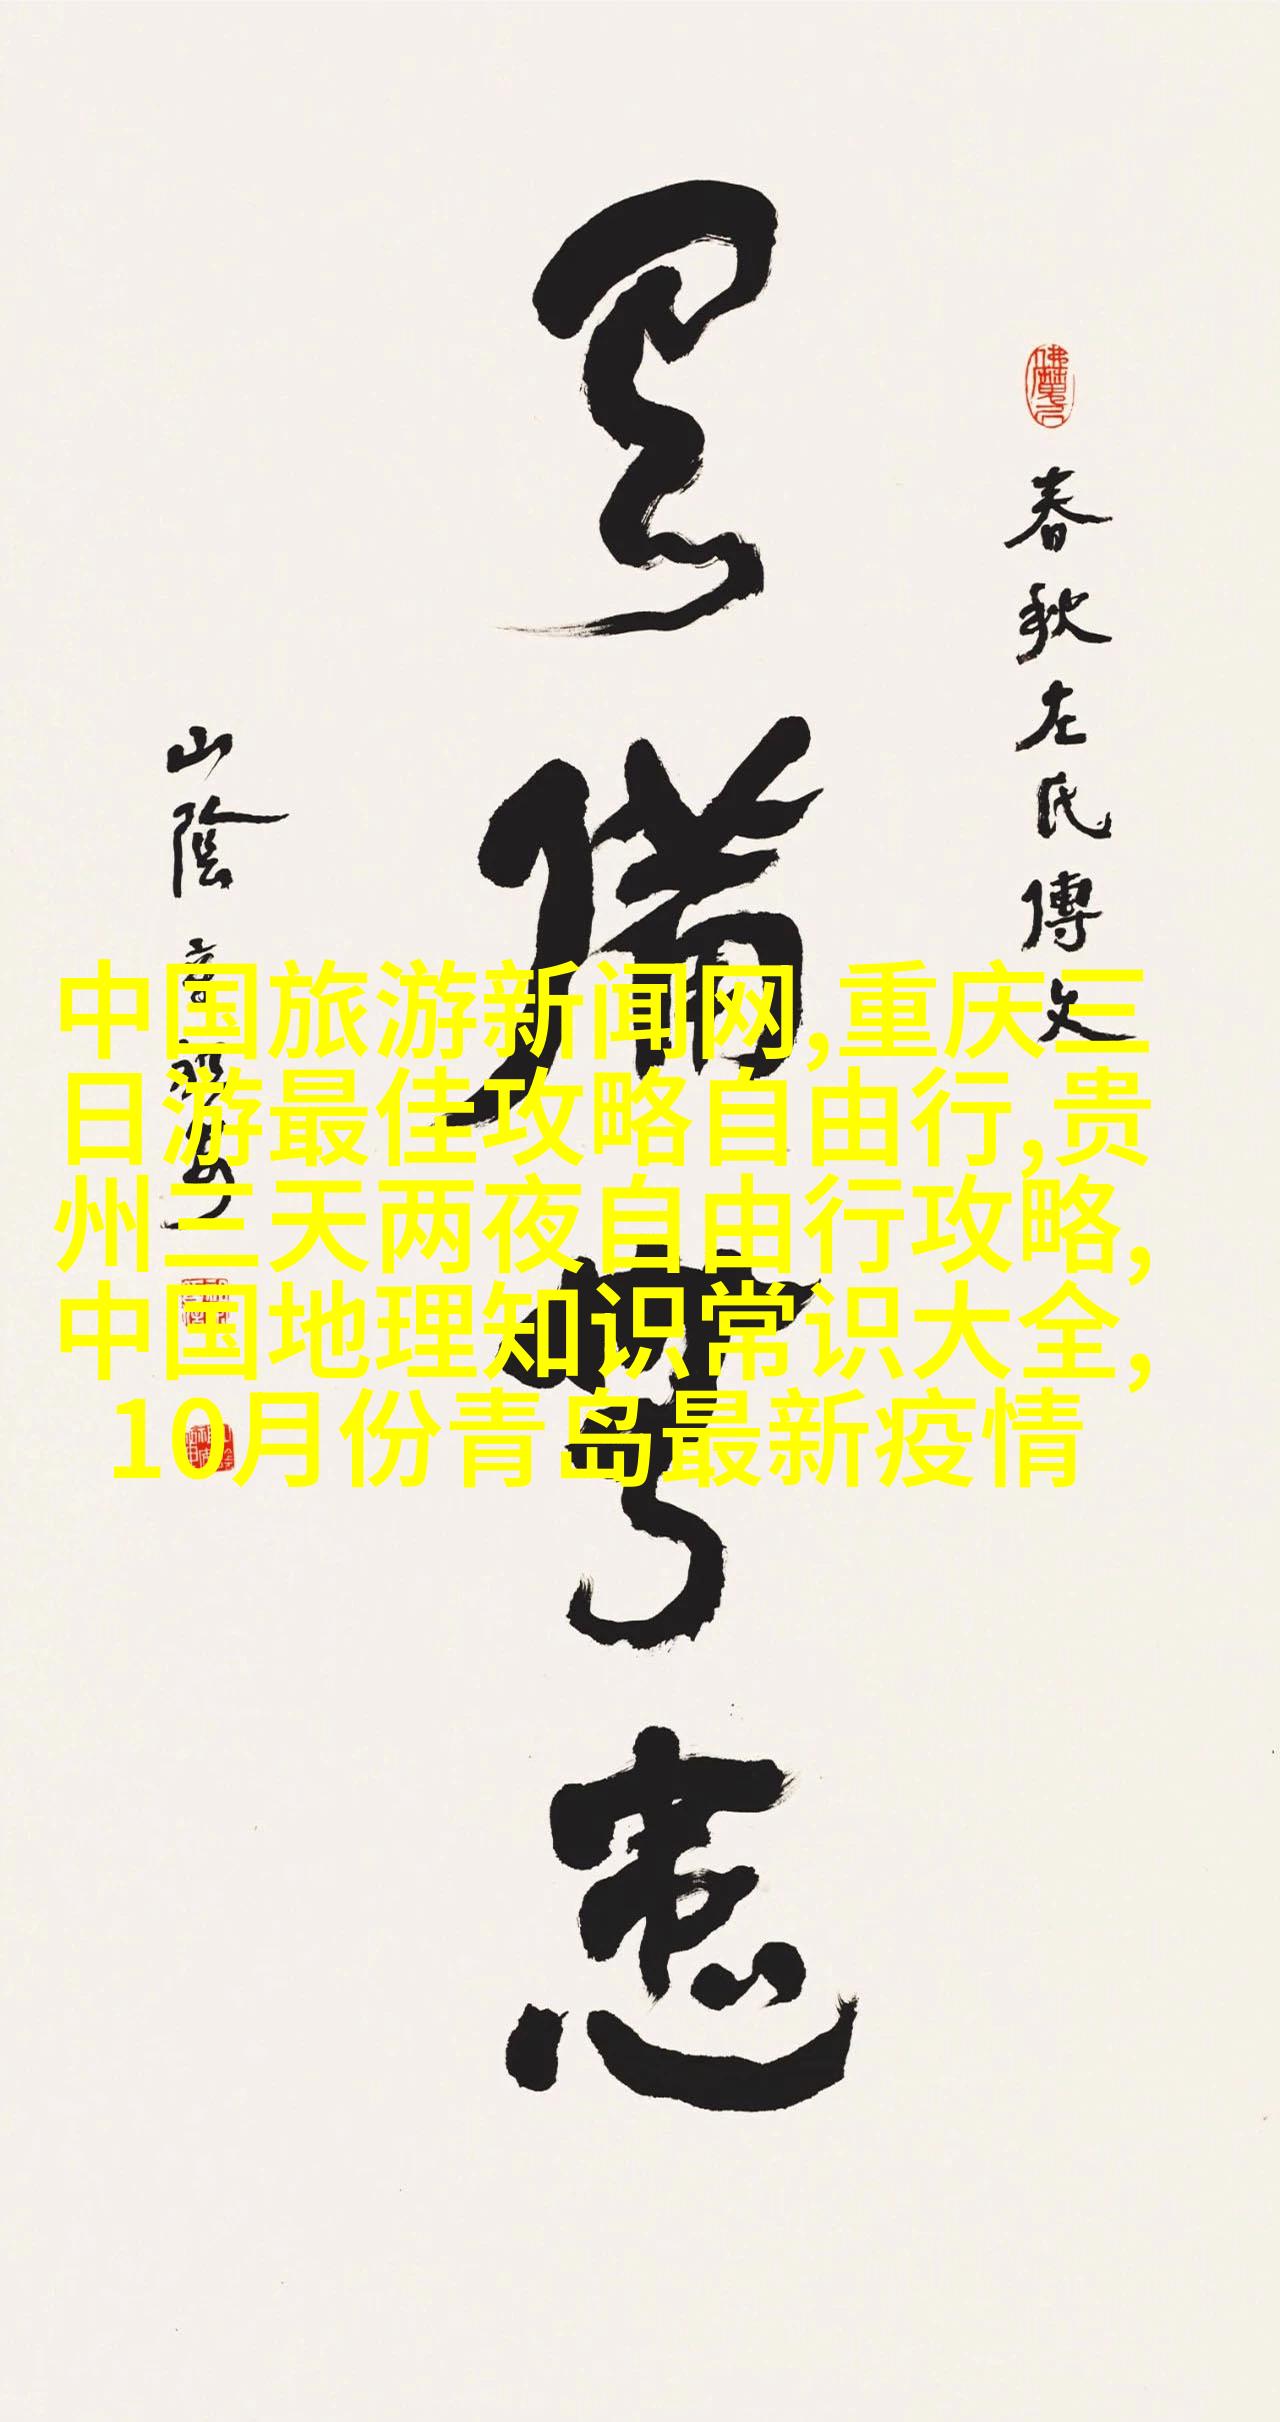 有備無患
春秋左氏傳文
山陰
中国旅游新闻网,重庆三
日游最佳攻略自由行,贵
州三天两夜自由行攻略,
中国地理知识常识大全,
10月份青岛最新疫情